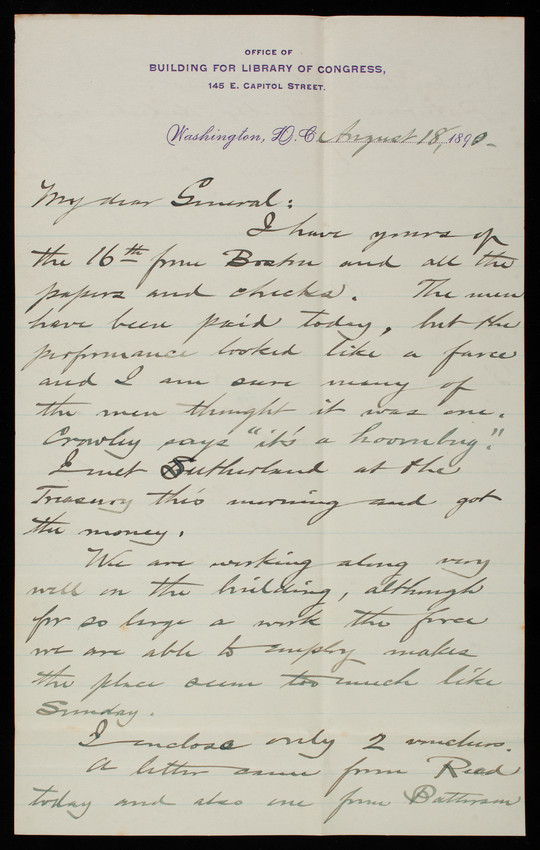 OFFICE OF
BUILDING FOR LIBRARY OF CONGRESS,
145 E. CAPITOL STREET.
Washington, D. C. August 18, 1890-
My dear General:
I have yours of
the 16th from Boston and all the
papers and checks. The men
have been paid today, but the
proformance looked like a farce
and I am sure many of
the men thought it was one.
Crowley says "it's a hoombug."
I met Sutherland at the
Treasury this morning and got
the money.
We are working along very
well on the building, although
for so large a work the force
we are able to employ makes
the place seem too much like
Sunday.
I enclose only 2 vouchers.
A letter came from Read
today and also one from Patterson